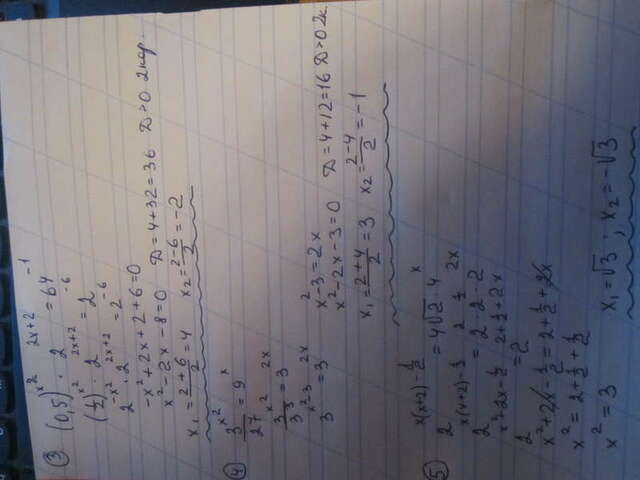 ③ (0,5)^{x^2} · 2^{2x+2} = 64^{-1}
(1/2)^{x^2} · 2^{2x+2} = 2^{-6}
2^{-x^2} · 2^{2x+2} = 2^{-6}
-x^2+2x+2+6=0
x^2-2x-8=0 D=4+32=36 D>0 2кор.
x_1=(2+6)/2=4 x_2=(2-6)/2=-2
④ 3^{x^2}/27 = 9^x
3^{x^2}/3^3 = 3^{2x}
3^{x^2-3} = 3^{2x} x^2-3=2x
x^2-2x-3=0 D=4+12=16 D>0 2к.
x_1=(2+4)/2=3 x_2=(2-4)/2=-1
⑤ 2^{x(x+2)-1/2} = 4√2·4^x
2^{x(x+2)-1/2} = 2^2·2^{1/2}·2^{2x}
2^{x^2+2x-1/2} = 2^{2+1/2+2x}
x^2+2x-1/2=2+1/2+2x
x^2=2+1/2+1/2
x^2=3 x_1=√3; x_2=-√3